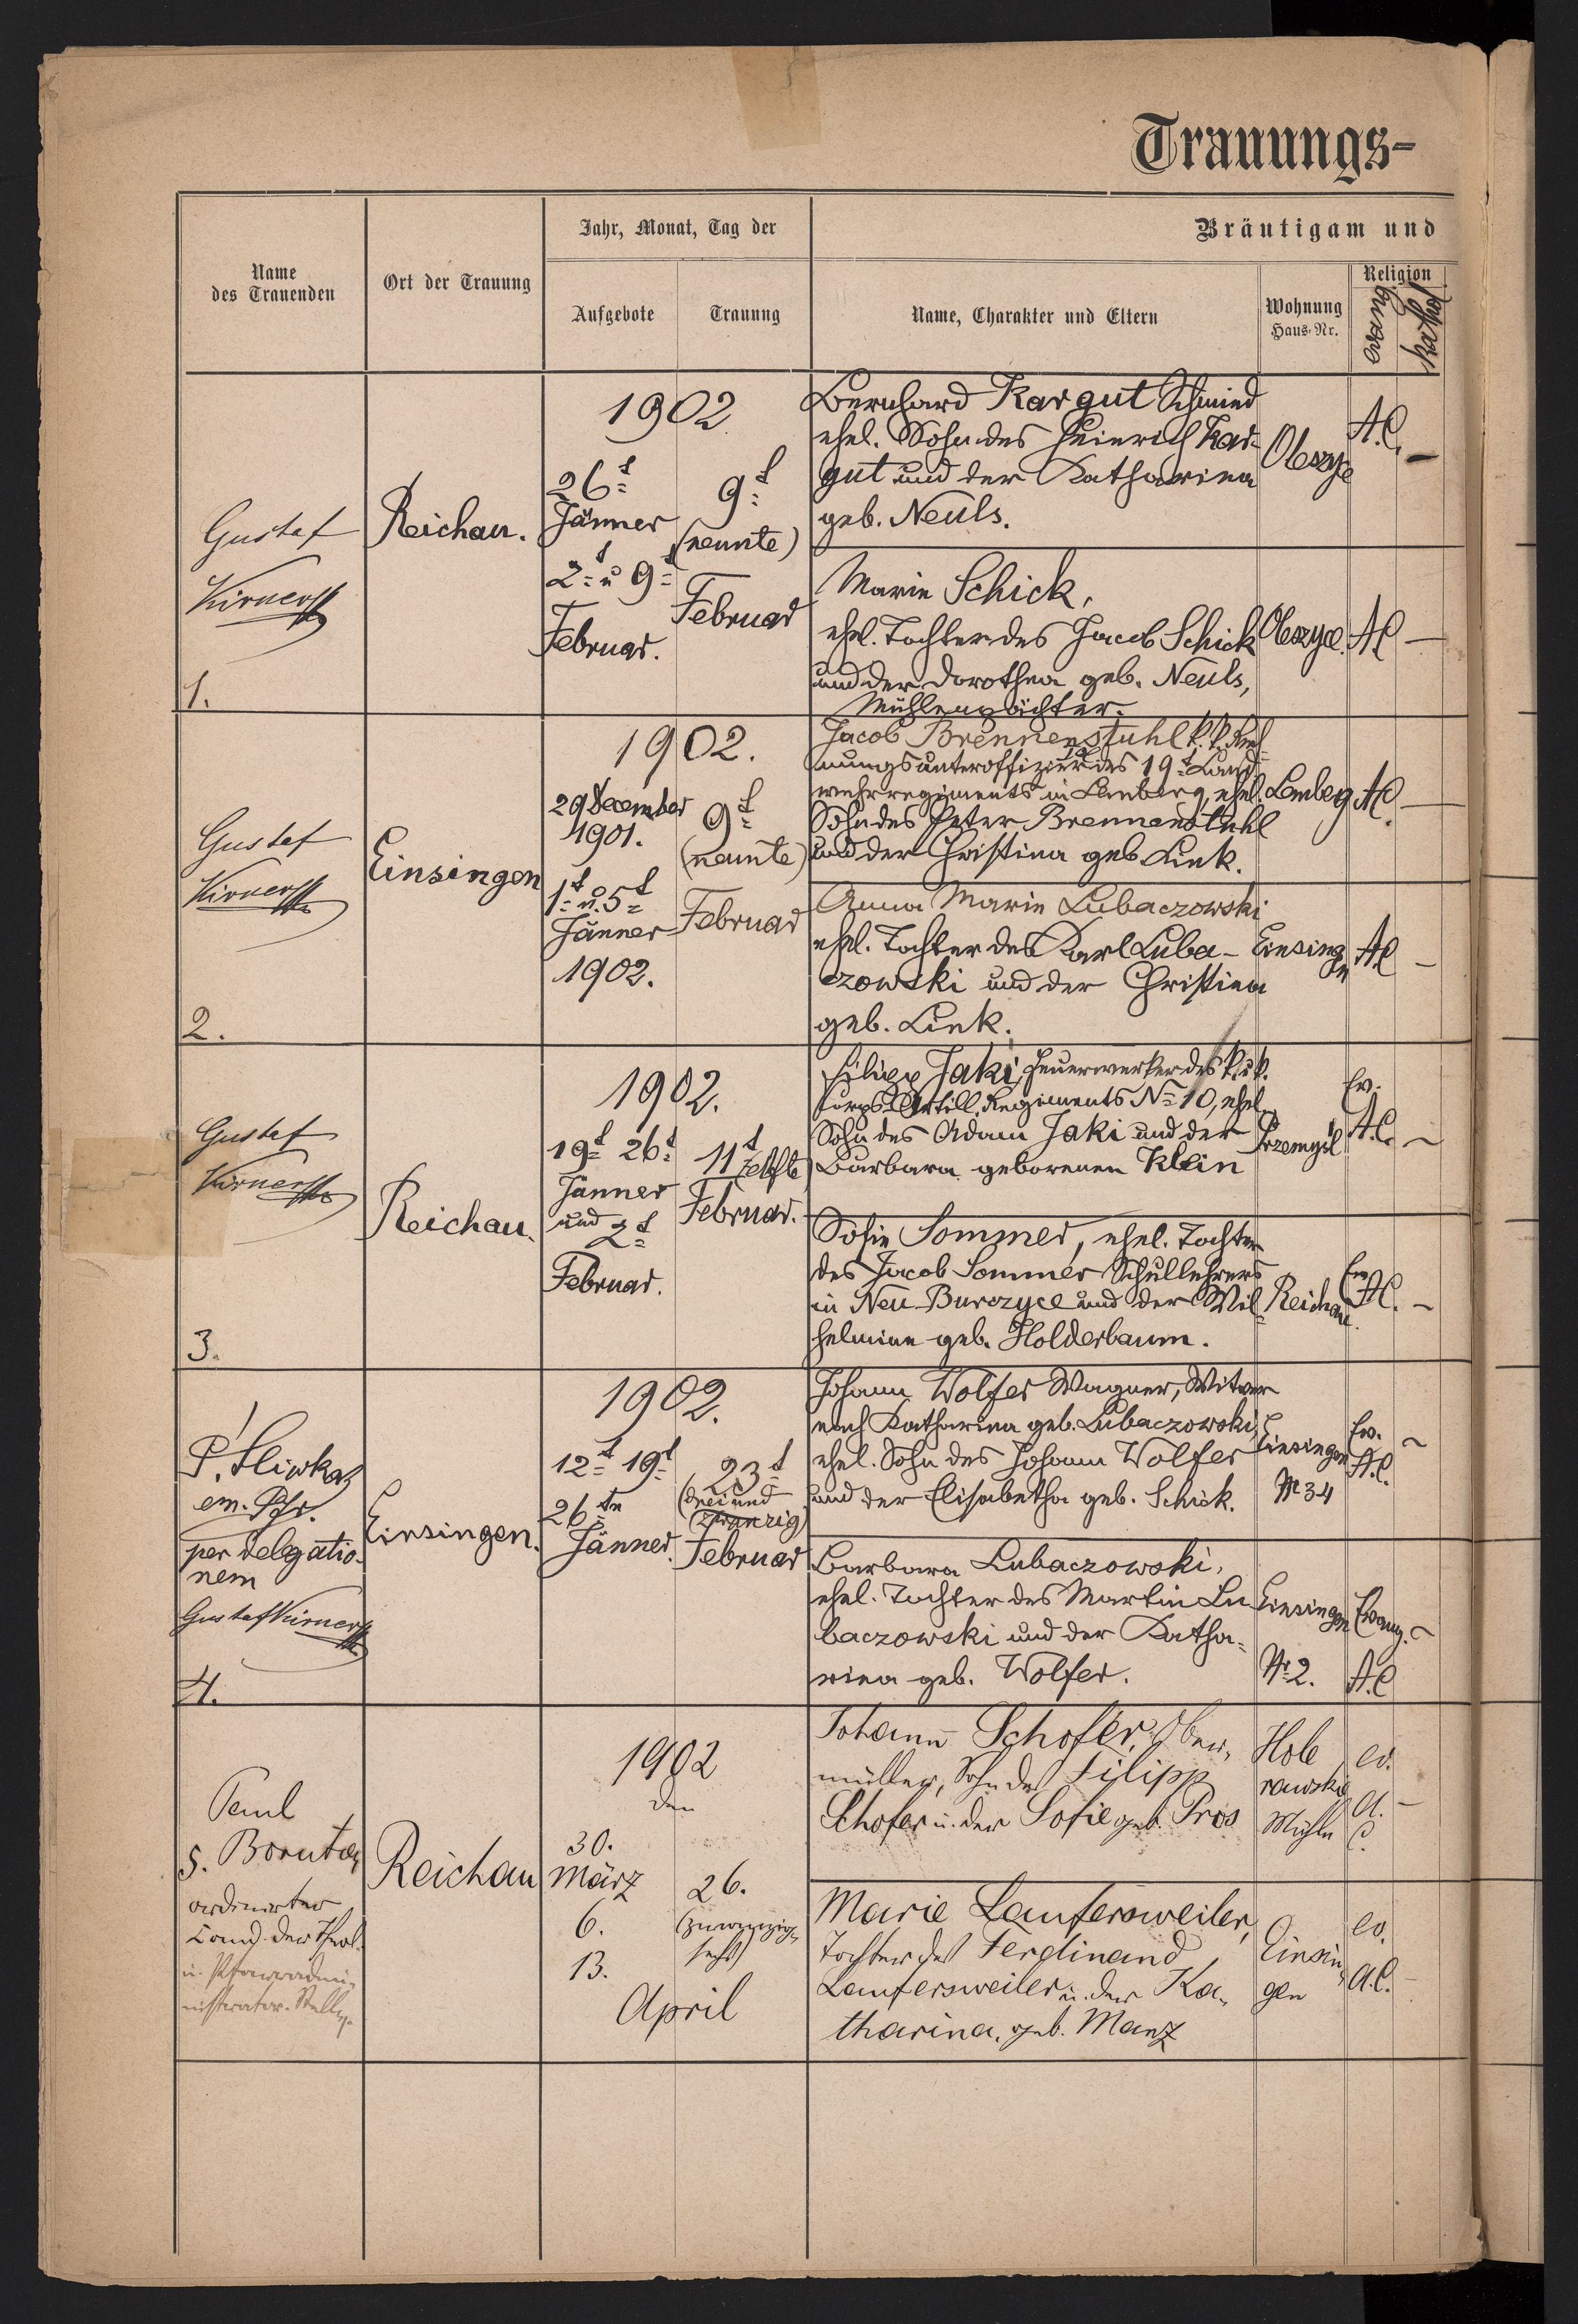 Trauungs-
Name
des Trauenden
Ort der Trauung
Jahr, Monat, Tag der
Aufgebote
Trauung
Bräutigam und
Name, Charakter und Eltern
Wohnung
Haus-Nr.
Religion
evang
kathol
1.
Gustaf
Reichau.
1902
26t
Jänner
2t u 9t
Februar.
9t
(neunte)
Februar
Bernhard Kargut Schmied
ehel. Sohn des Heinrich Kar-
gut und der Katharina
geb. Neuls.
Oleszyce
A.C.
–
Marie Schick,
ehel. Tochter des Jacob Schick
und der Dorothea geb. Neuls,
Mühlenpächter.
Oleszyce.
A.C
–
2.
Gustaf
Einsingen
1902.
29 December
1901.
1t u. 5t
Jänner
1902.
9t
(neunte)
Februar
Jacob Brennenstuhl k.k. Rech
nungsunteroffizier des 19t Land
wehrregiments in Lemberg, ehel.
Sohn des Peter Brennenstuhl
und der Christina geb Link.
Lemberg
A.C.
–
Anna Marie Lubaczowski
ehel. Tochter des Karl Luba-
czowski und der Christina
geb. Link.
Einsingen
A.C
–
3.
Gustaf
Reichau.
1902.
19t 26t
Jänner
und 2t
Februar.
11t
/elfte
Februar.
Filipp Jaki, Feuerwerker des k.u.k.
Corps Artill. Regiments No 10, ehel.
Sohn des Adam Jaki und der
Barbara geborenen Klein
Przemyśl
Ev.
A.C.
–
Sofie Sommer, ehel. Tochter
des Jacob Sommer Schullehrers
in Neu Burczyce und der Wil-
helmine geb. Holderbaum.
Reichau.
Ev
A.C.
–
4.
P. Sliwka
em. Pfr.
per delegatio-
nem
Gustaf
Einsingen.
1902.
12t 19t
26tn
Jänner.
23t
(drei und
zwanzig)
Februar
Johann Wolfer Wagner, Witwer
nach Katharina geb. Lubaczowski,
ehel. Sohn des Johann Wolfer
und der Elisabetha geb. Schick.
Einsingen
No 34
Ev.
A.C.
–
Barbara Lubaczowski,
ehel. Tochter des Martin Lu
baczowski und der Katha-
rina geb. Wolfer.
Einsingen
Nr 2.
Evang.
A.C
–
5.
Paul
Boruta
ordinirter
Cand. der Theol.
u. Pfarradmi-
nistrator-Stellv.
Reichau
1902
den
30.
März
6.
13.
26.
(zwanzig-
sechs)
April
Johann Schofer, Ober-
müller, Sohn des Filipp
Schofer u. der Sofie geb. Pros
Hole
rawskie
Mühle
ev.
A.
C.
–
Marie Laufersweiler,
Tochter des Ferdinand
Laufersweiler u. der Ka-
tharina, geb. Manz
Einsin-
gen
ev.
A.C.
–